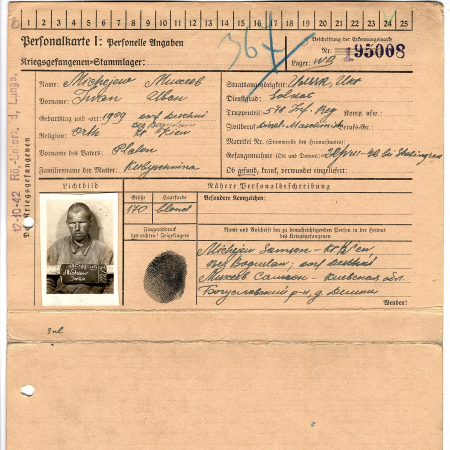 1 2 3 4 5 6 7 8 9 10 11 12 13 14 15 16 17 18 19 20 21 22 23 24 25
Personalkarte I: Personelle Angaben
Kriegsgefangenen-Stammlager:
364
Beschriftung der Erkennungsmarke
Nr. 195008
Lager:
Name: Michejew Михеев
Vorname: Iwan Иван
Geburtstag und -ort: 1909 dorf
Religion: Orth. Kr Kiew
Vorname des Vaters: Platon
Familienname der Mutter:
Staatsangehörigkeit:
Dienstgrad: Soldat
Truppenteil: 578 Inf. Reg Komp. usw.:
Zivilberuf: Berufs-Gr.:
Matrikel Nr. (Stammrolle des Heimatstaates):
Gefangennahme (Ort und Datum): bei Stalingrad
Ob gesund, krank, verwundet eingeliefert:
12-10-42 Rö.-Unters. d. Lunge.
Des Kriegsgefangenen
Lichtbild
Nähere Personalbeschreibung
Größe Haarfarbe
170 blond
Besondere Kennzeichen:
Fingerabdruck
des rechten! Zeigefingers
Name und Anschrift der zu benachrichtigenden Person in der Heimat
des Kriegsgefangenen
Michejew Samson - Kr Kiew
Михеев Самсон - Киевская обл.
Богуславский р-н д.
Wenden!